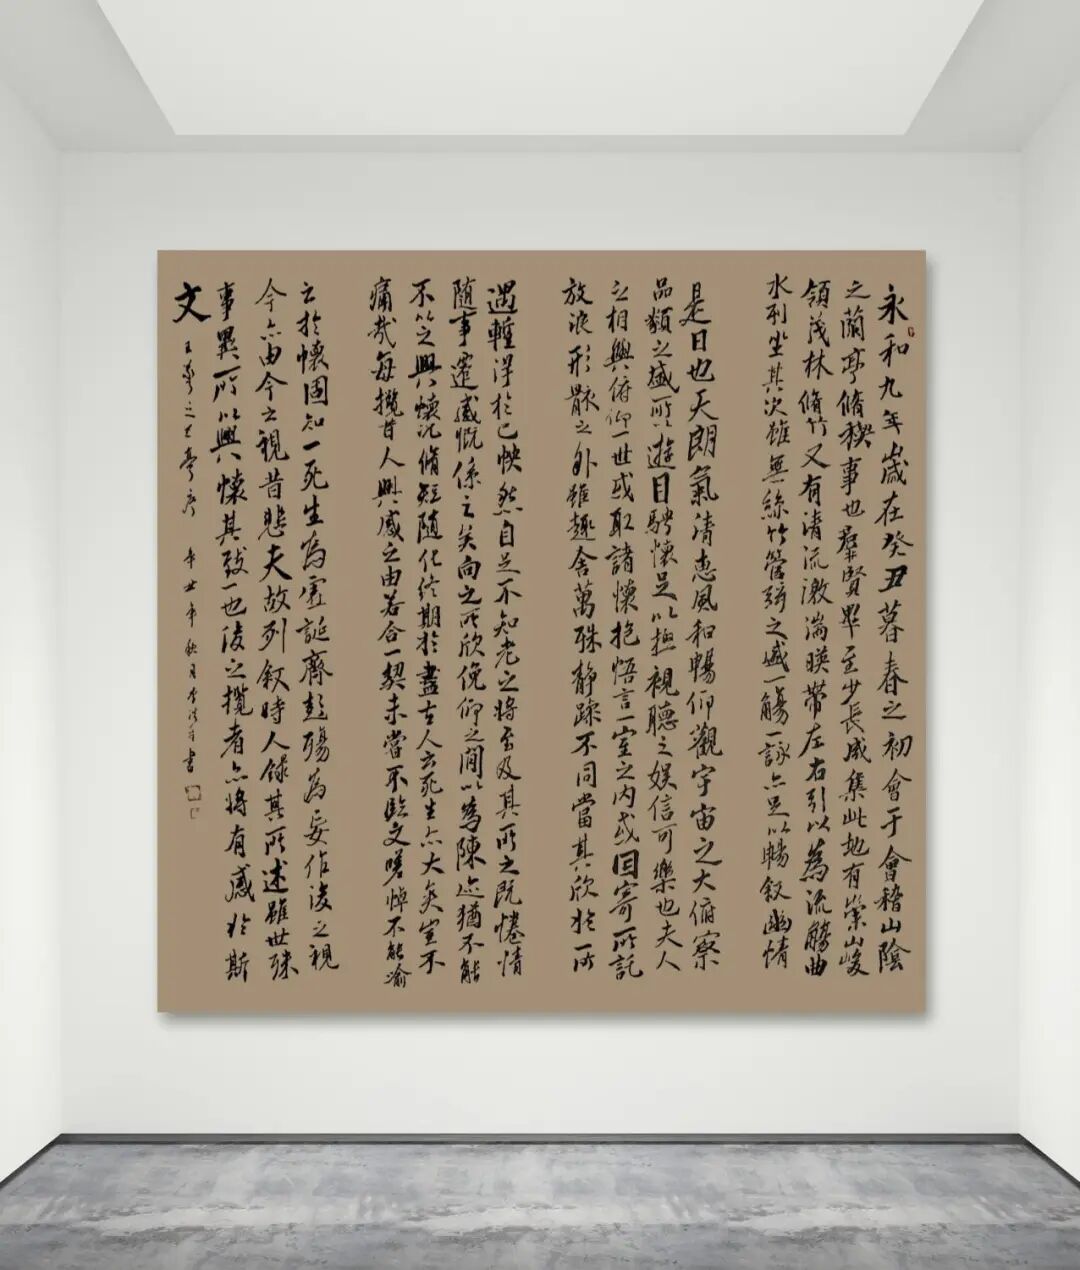 永和九年歲在癸丑暮春之初會于會稽山陰
之蘭亭脩稧事也羣賢畢至少長咸集此地有崇山峻
領茂林脩竹又有清流激湍暎帶左右引以為流觴曲
水列坐其次雖無絲竹管弦之盛一觴一詠亦足以暢敘幽情
是日也天朗氣清惠風和暢仰觀宇宙之大俯察
品類之盛所以遊目騁懷足以極視聽之娛信可樂也夫人
之相與俯仰一世或取諸懷抱悟言一室之內或因寄所託
放浪形骸之外雖趣舍萬殊靜躁不同當其欣於所
遇暫得於己怏然自足不知老之將至及其所之既惓情
隨事遷感慨係之矣向之所欣俛仰之間以為陳迹猶不能
不以之興懷況脩短隨化終期於盡古人云死生亦大矣豈不
痛哉每攬昔人興感之由若合一契未嘗不臨文嗟悼不能喻
之於懷固知一死生為虛誕齊彭殤為妄作後之視
今亦由今之視昔悲夫故列敘時人錄其所述雖世殊
事異所以興懷其致一也後之攬者亦將有感於斯
文 王羲之兰亭序 年秋月 書